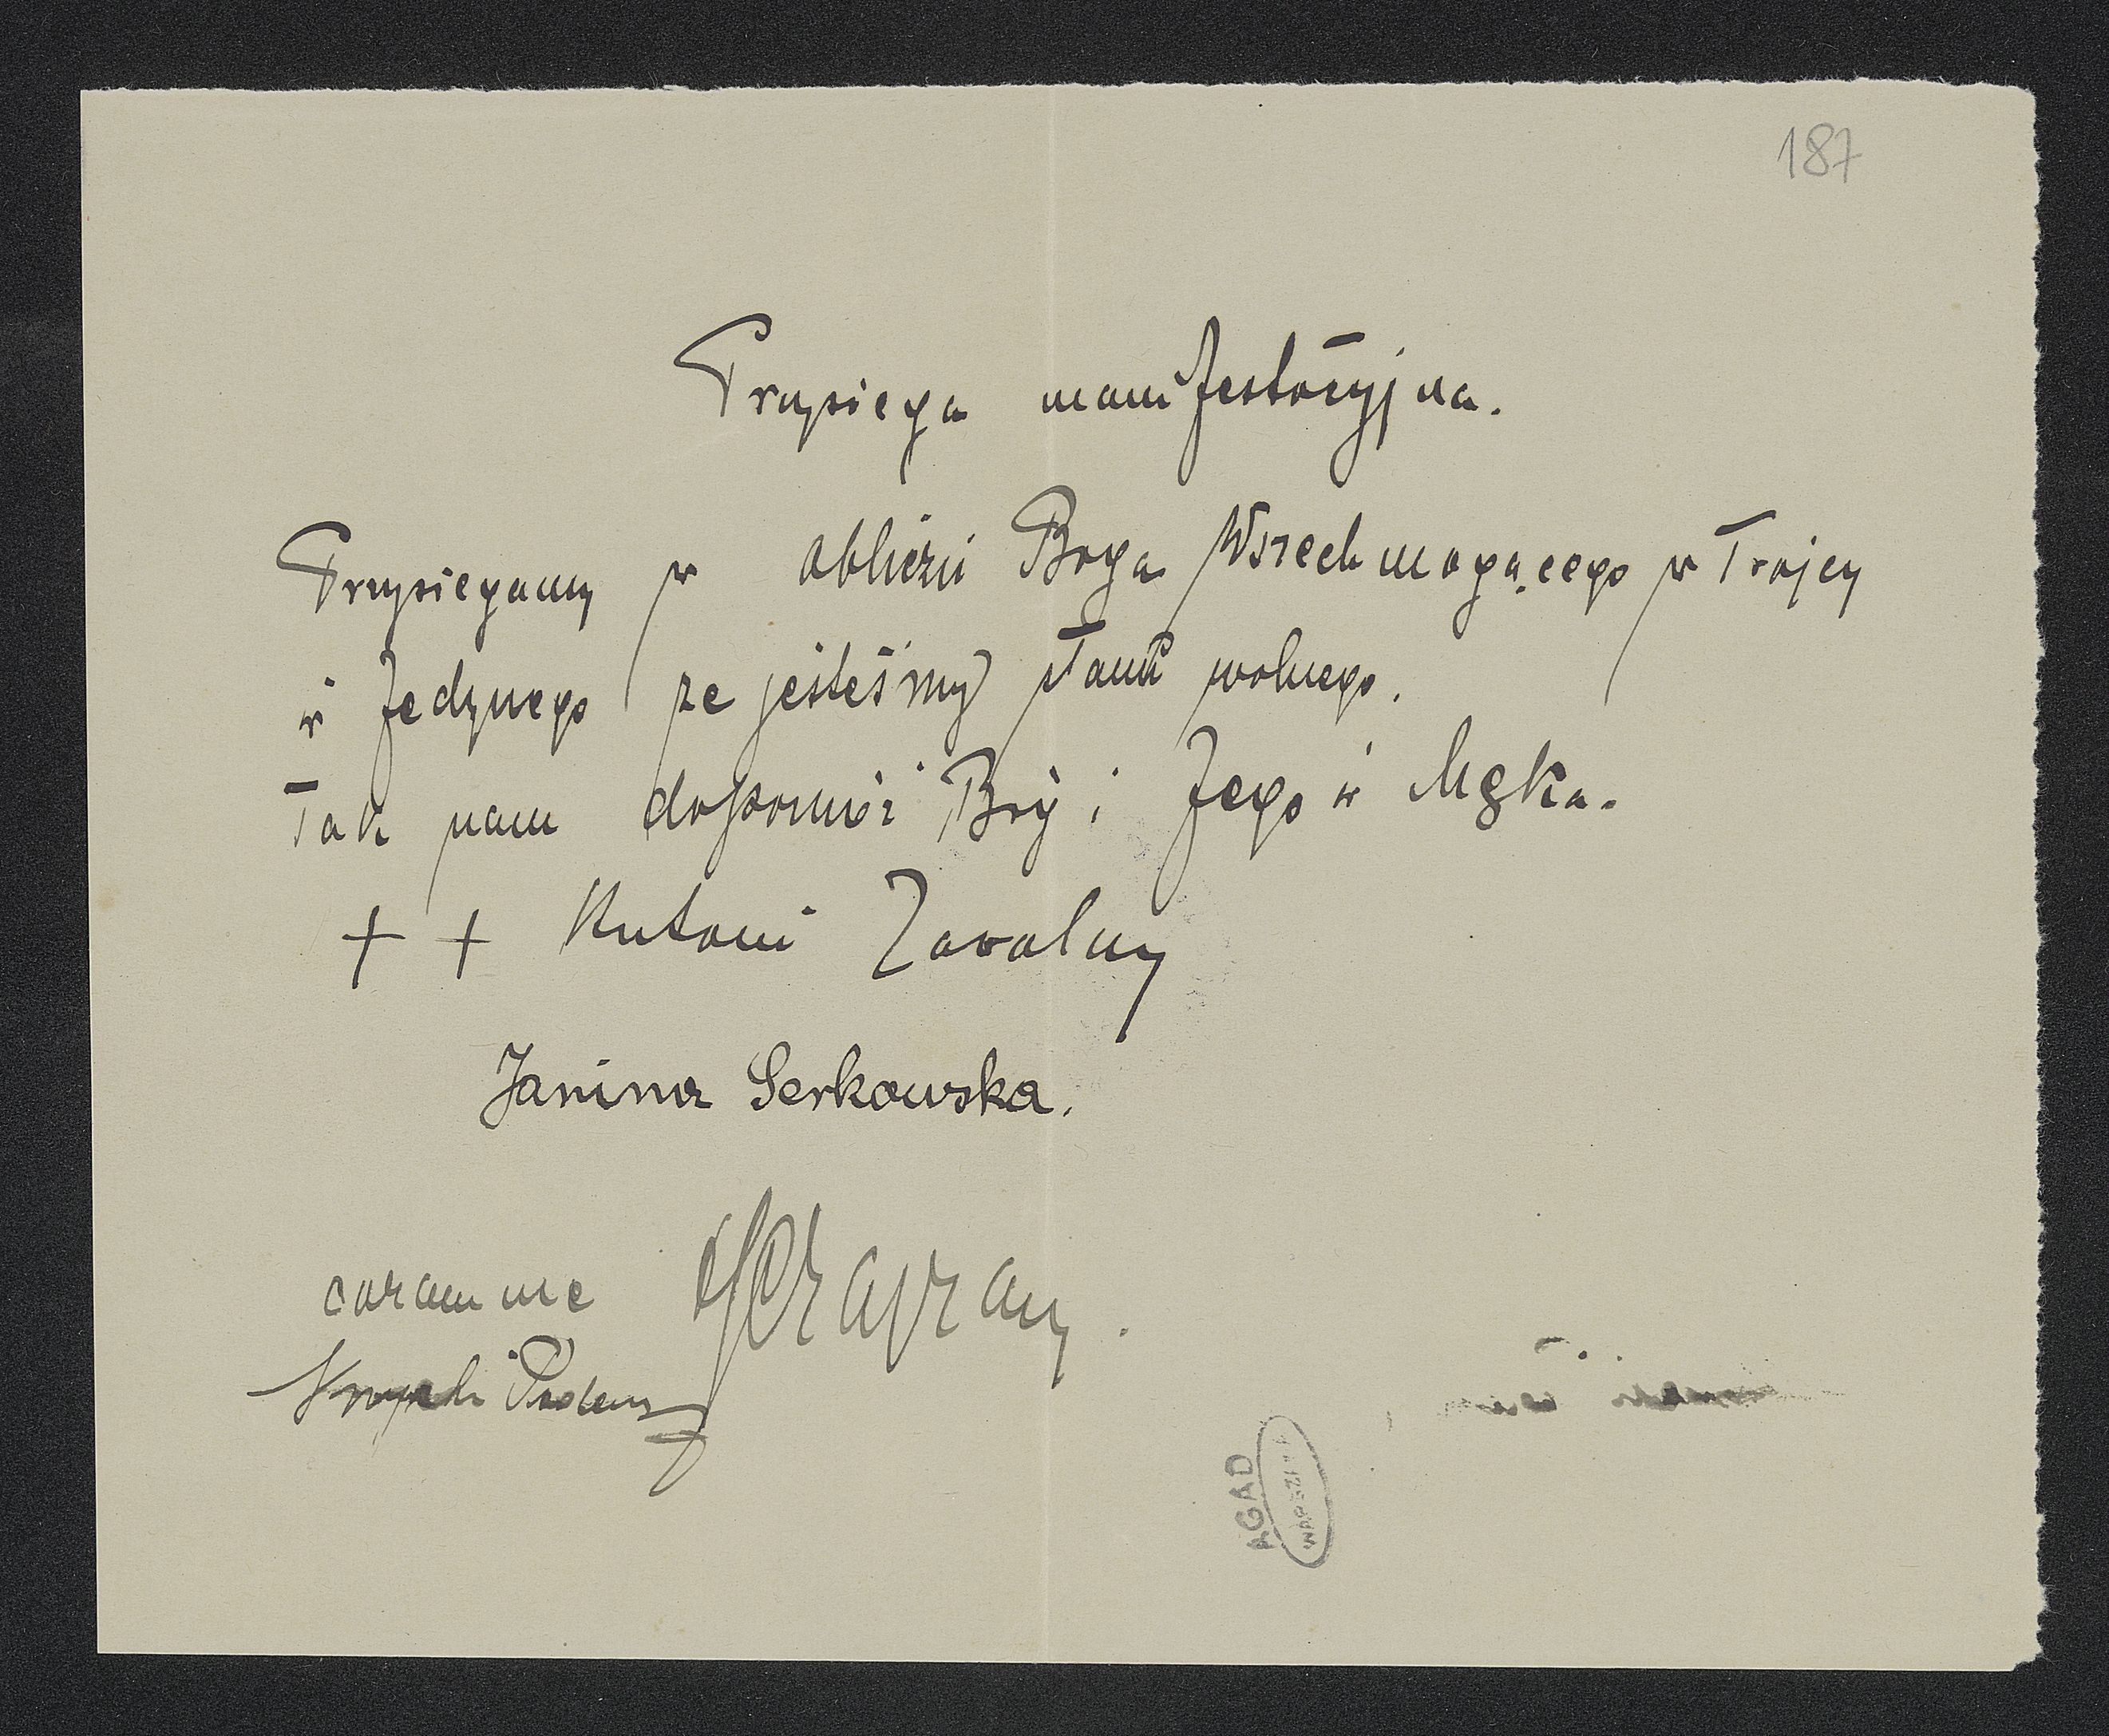 187
Przysięga manifestacyjna.
Przysiegamy w obliczu Boga Wszechmogącego w Trójcy
ś Jedynego że jesteśmy stanu wolnego.
Tak nam dopomóż Bóg i Jego ś Męka.
+ + Antoni Zavalny
Janina Serkowska.
coram me
AGAD
WARSZAWA